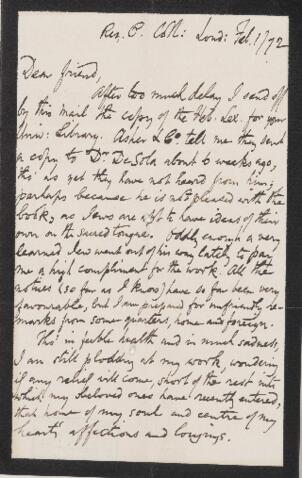 Reg. P. Coll: Lond: Feb. 1/72
Dear friend,
After too much delay I send off
by this mail the copy of the Heb. Lex. for your
Univ: Library. Asher & Co. tell me they sent
a copy to Dr. DeSola about 6 weeks ago,
tho' as yet they have not heard from him;
perhaps because he is not pleased with the
book, as Jews are apt to have ideas of their
own on the sacred tongue. Oddly enough a very
learned Jew went out of his way lately to pay
me a high compliment for the work. All the
notices (so far as I know) have so far been very
favourable, but I am prepared for unfriendly re-
marks from some quarters, home and foreign.
Tho' in feeble health and in much sadness,
I am still plodding at my work, wondering
if any relief will come, short of the rest into
which my beloved ones have recently entered,
that home of my soul and centre of my
heart's affections and longings.